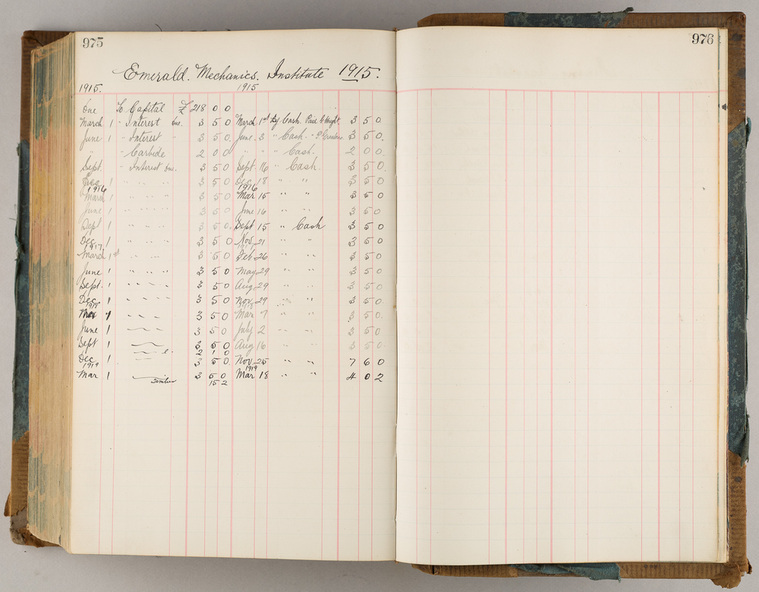 975
976
Emerald Mechanics Institute 1915.
1915. 1915
To Capital £ 218 0 0
March 1 " Interest due 3 5 0 March 1st By Cash Paid 3 5 0
June 1 " Interest " 3 5 0 June 3 " Cash 3 5 0
" Carbide 2 0 0 " Cash 2 0 0
Sept " Interest due 3 5 0 Sept 16 " Cash 3 5 0
Dec 1 " " " 3 5 0 Dec 18 " " 3 5 0
1916 1916
March " " " 3 5 0 Mar 15 " " 3 5 0
June 1 " " " 3 5 0 June 16 " " 3 5 0
Sept 1 " " " 3 5 0 Sept 15 " Cash 3 5 0
Dec 1 " " " 3 5 0 Nov 21 " " 3 5 0
1917
March 1st " " " 3 5 0 Feb 26 " " 3 5 0
June 1 " " " 3 5 0 May 29 " " 3 5 0
Sept. 1 " " " 3 5 0 Aug 29 " " 3 5 0
Dec 1 " " " 3 5 0 Nov 29 " " 3 5 0
1918
Mar 1 3 5 0 Mar 7 " " 3 5 0
June 1 3 5 0 July 2 " " 3 5 0
Sept 1 3 5 0 Aug 16 " " 3 5 0
2 1 0
Dec 1 3 5 0 Nov 25 " " 7 6 0
1919 1919
Mar 1 3 5 0 Mar 18 " " 4 0 2
15 2